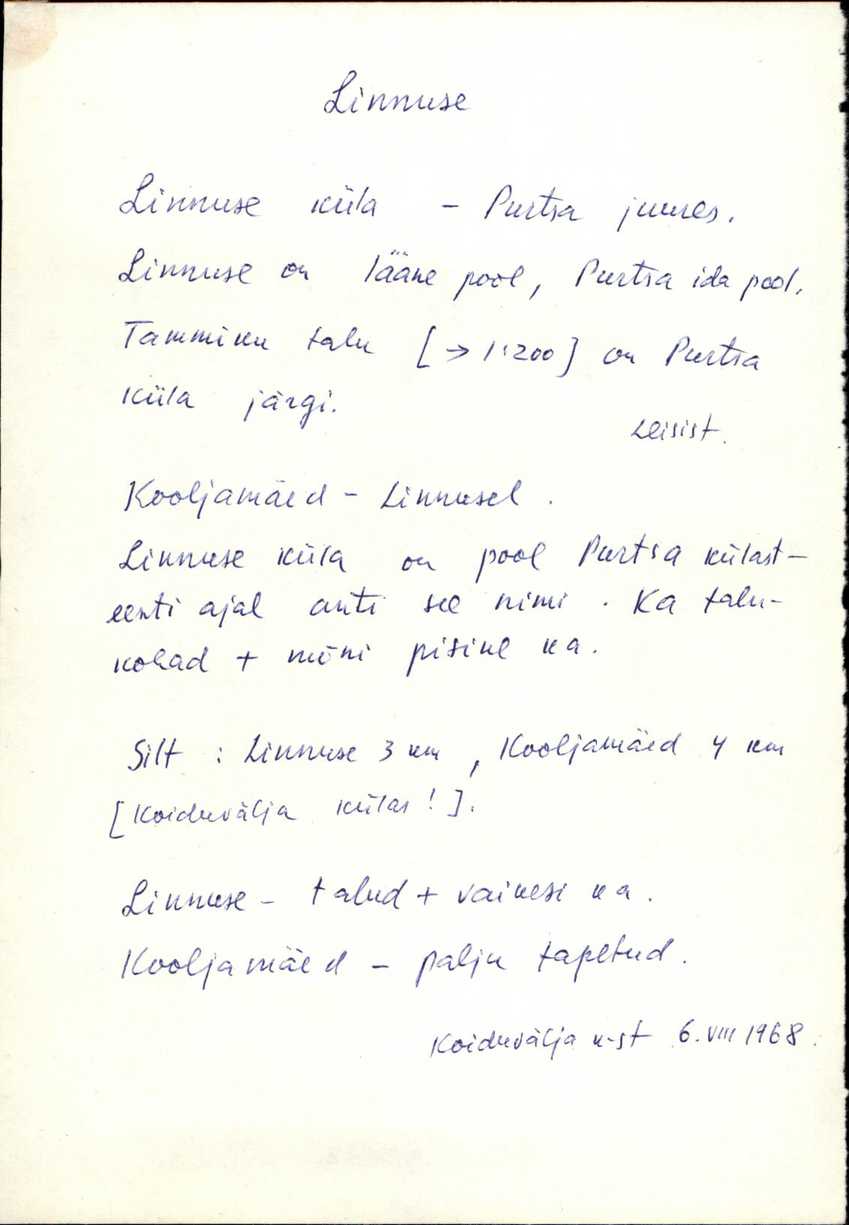 Linnuse
Linnuse küla - Purtsa juures.
Linnuse on lääne pool, Purtsa ida pool.
Tammiku talu [→ 1:200] on Purtsa
küla järgi.
Leisist.
Kooljamäed - Linnusel.
Linnuse küla on pool Purtsa külast -
eesti ajal anti see nimi. Ka talu-
kohad + mõni pisine ka.
Silt : Linnuse 3 km, Kooljamäed 4 km
[Koiduvälja külas!].
Linnuse - talud + vaikesi ka.
Kooljamäed - palju tapetud.
Koiduvälja k-st 6. VIII 1968.